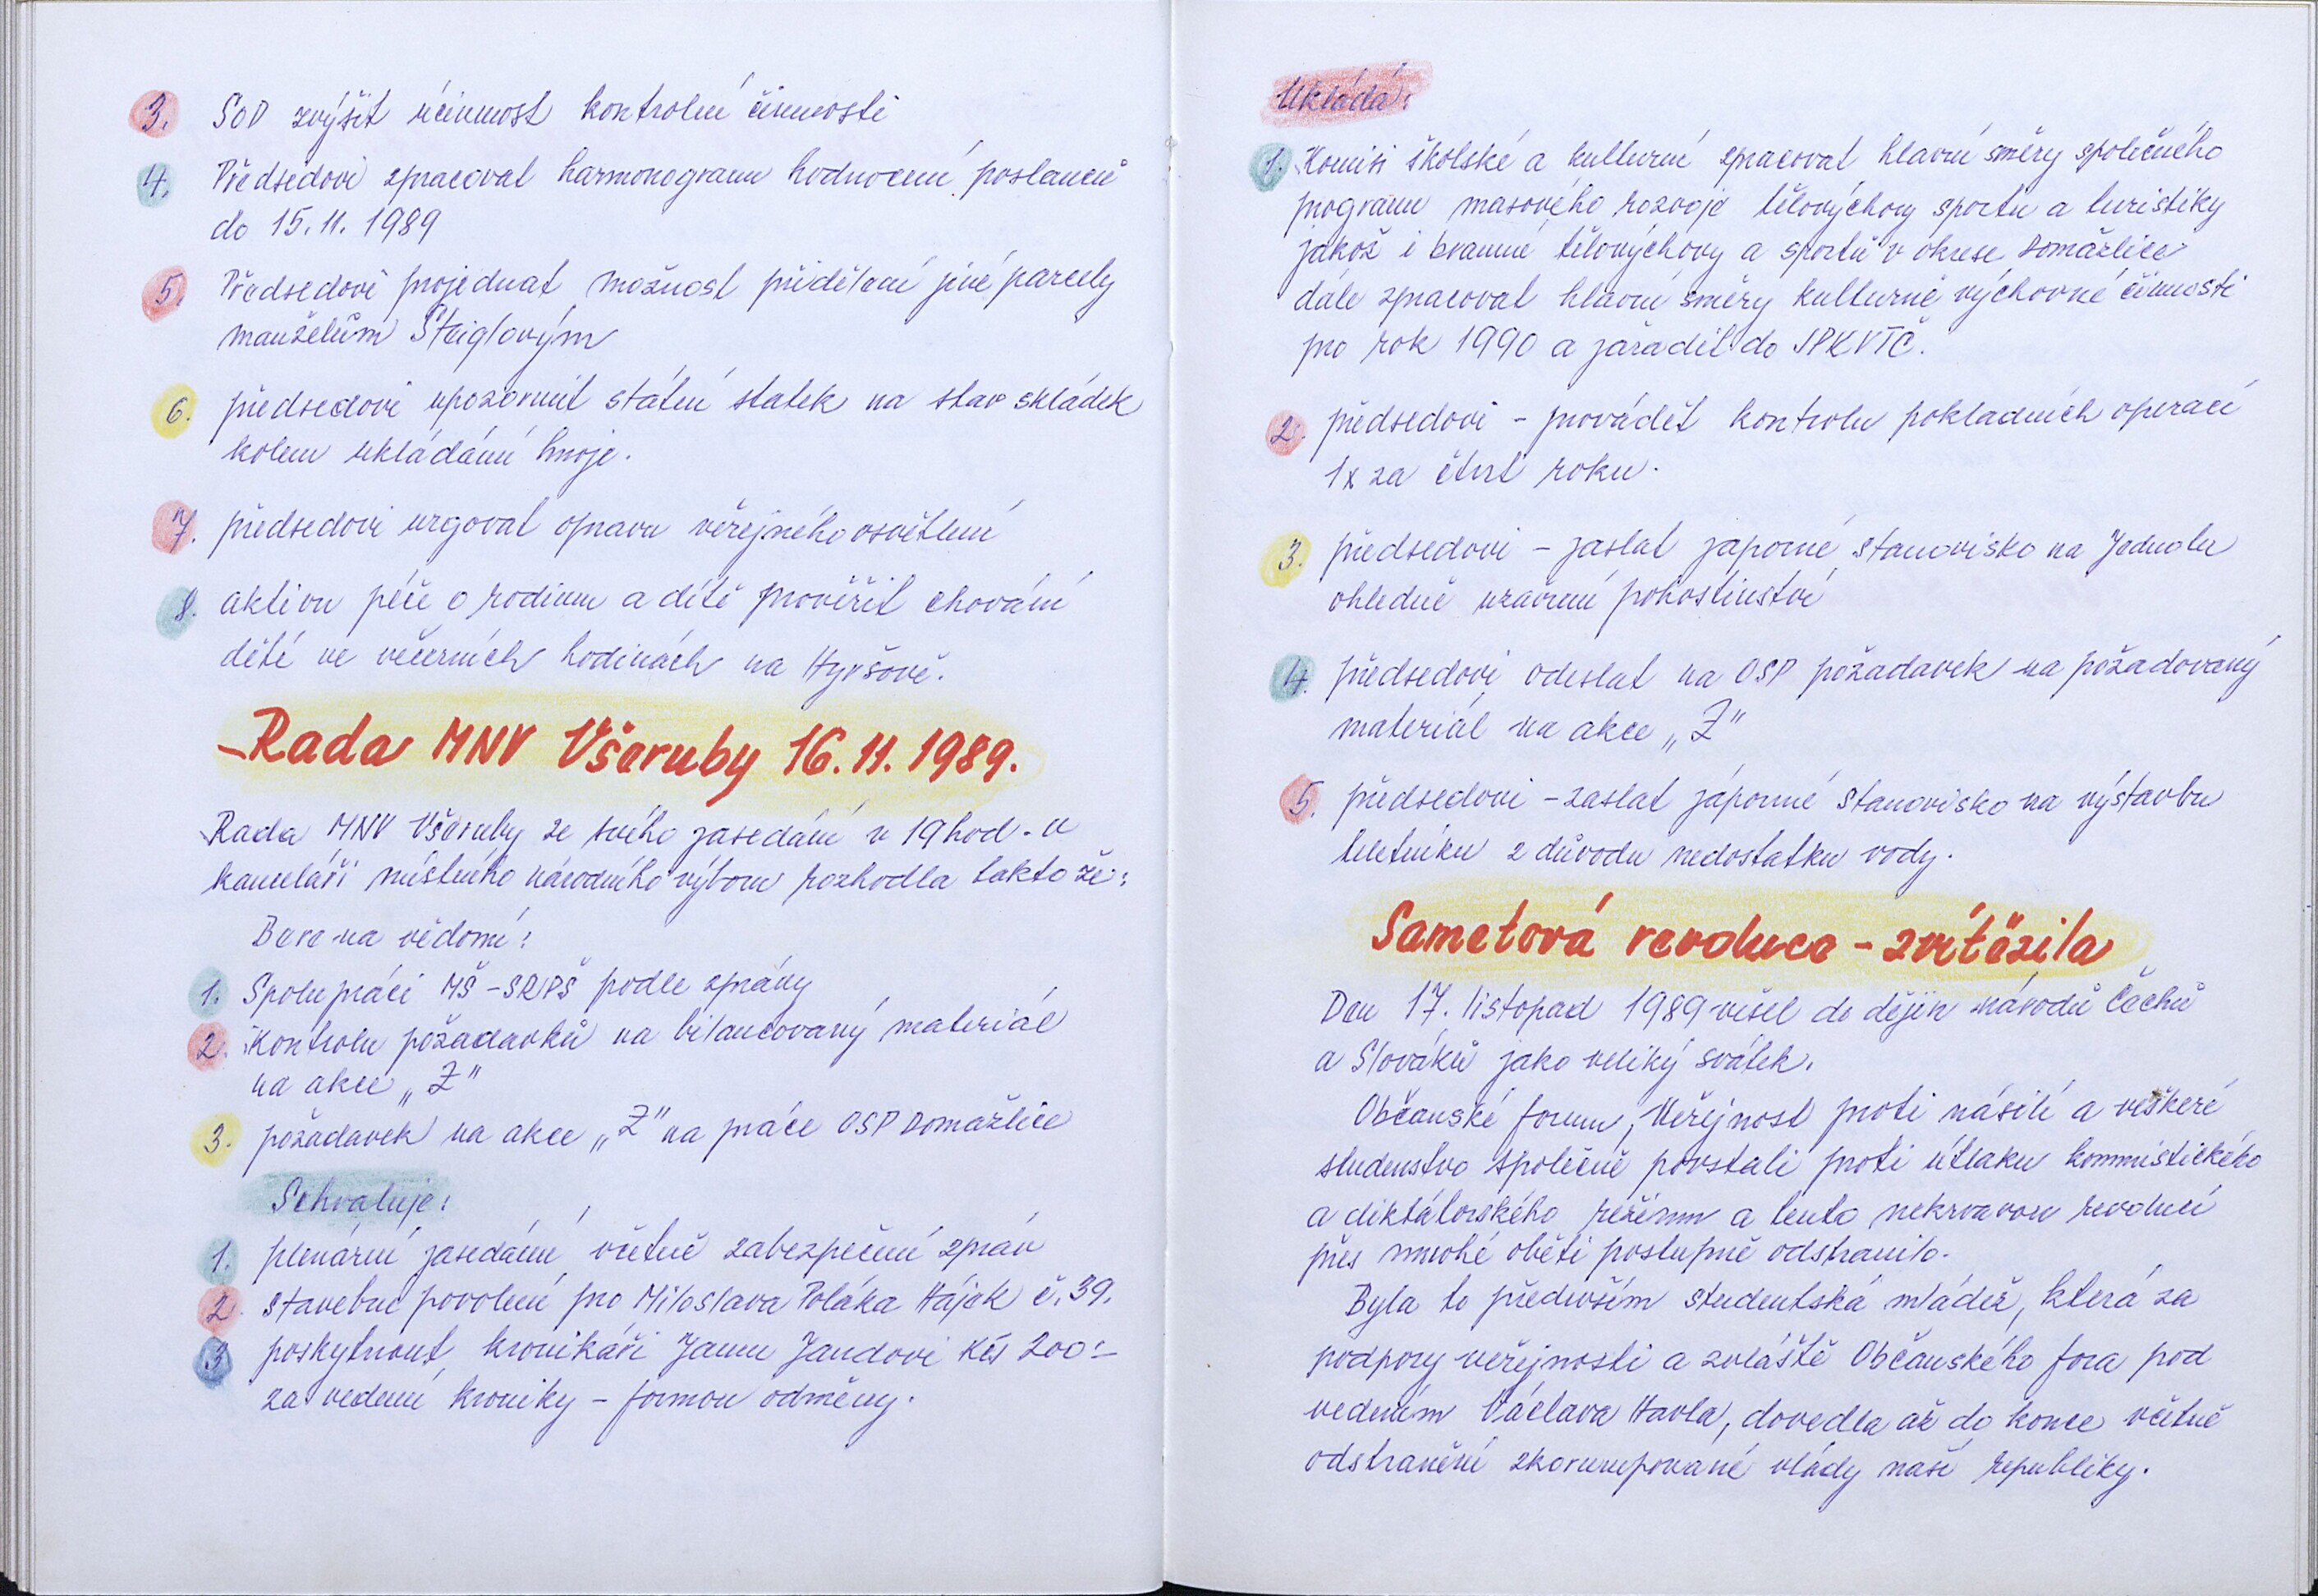 3. SOD zvýšit účinnost kontrolní činnosti
4. Předsedovi zpracovat harmonogram hodnocení poslanců
do 15. 11. 1989
5. Předsedovi projednat možnost přidělení jiné parcely
manželům Steiglovým
6. předsedovi upozornit státní statek na stav skládek
kolem ukládání hnoje.
7. předsedovi urgovat opravu veřejného osvětlení
8. aktivu péče o rodinu a dítě prověřit chování
dětí ve večerních hodinách na Hyršově.
Rada MNV Všeruby 16. 11. 1989.
Rada MNV Všeruby ze svého zasedání v 19 hod. v
kanceláři místního národního výboru rozhodla takto že:
Bere na vědomí:
1. Spolupráci MŠ - SRPŠ podle zprávy
2. Kontrolu požadavků na bilancovaný materiál
na akce „Z"
3. požadavek na akce „Z" na práce OSP Domažlice
Schvaluje:
1. plenární zasedání včetně zabezpečení zpráv
2. stavební povolení pro Miloslava Poláka Hájek č. 39.
3. poskytnout kronikáři Janu Jandovi Kčs 200:-
za vedení kroniky - formou odměny.
Ukládá:
1. Komisi školské a kulturní zpracovat hlavní směry společného
programu masového rozvoje tělovýchovy sportu a turistiky
jakož i branné tělovýchovy a sportu v okrese Domažlice
dále zpracovat hlavní směry kulturně výchovné činnosti
pro rok 1990 a zařadit do JPKVTČ.
2. předsedovi - provádět kontrolu pokladních operací
1x za čtvrt roku.
3. předsedovi - zaslat záporné stanovisko na Jednotu
ohledně uzavření pohostinství
4. předsedovi odeslat na OSP požadavek na požadovaný
materiál na akce „Z"
5. předsedovi - zaslat záporné stanovisko na výstavbu
teletníku z důvodu nedostatku vody.
Sametová revoluce - zvítězila
Den 17. listopad 1989 vešel do dějin národů Čechů
a Slováků jako veliký svátek.
Občanské forum, Veřejnost proti násilí a veškeré
studenstvo společně povstali proti útlaku kommistického
a diktátorského režimu a tento nekrvavou revolucí
přes mnohé oběti postupně odstranilo.
Byla to především studentská mládež, která za
podpory veřejnosti a zvláště Občanského fora pod
vedením Václava Havla, dovedla až do konce včetně
odstranění zkorumpované vlády naší republiky.